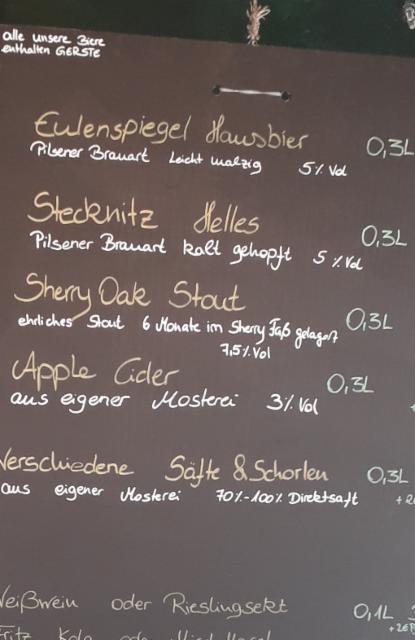 alle unsere Biere
enthalten GERSTE
Eulenspiegel Hausbier 0,3L
Pilsener Brauart Leicht malzig 5% Vol
Stecknitz Helles 0,3L
Pilsener Brauart kalt gehopft 5 % Vol
Sherry Oak Stout
ehrliches Stout 6 Monate im Sherry Faß gelagert 0,3L
7,5% Vol
Apple Cider 0,3L
aus eigener Mosterei 3% Vol
Verschiedene Säfte & Schorlen 0,3L
aus eigener Mosterei 70%-100% Direktsaft
Weißwein oder Rieslingsekt 0,1L
Fritz Kola